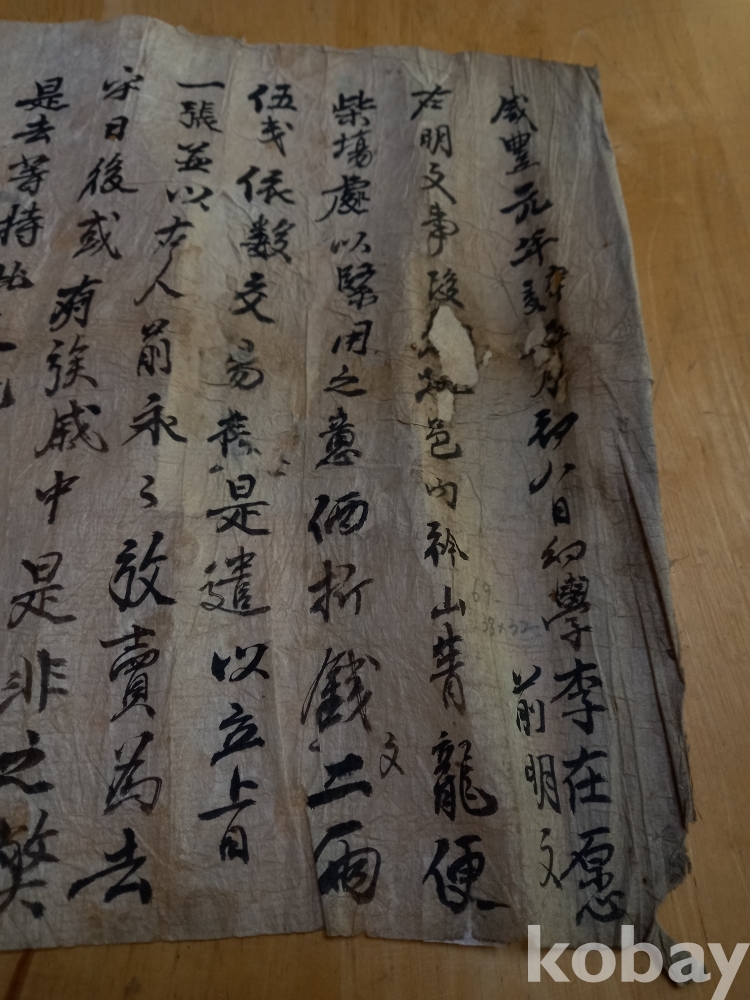 咸豊元年辛亥 月初八日幼學李在愿
前明文
右明文事段 邑內 山青龍便
柴場處以緊用之意価折錢二兩
文
伍戔依数交易 是遣以立上日
一張並以右人前永〻放賣爲去
乎日後或有族戚中是非之弊
是去等持此文
69
kobay